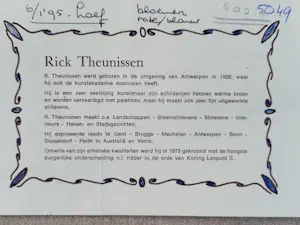 bloemen
5049
Rick Theunissen
R. Theunissen werd geboren in de omgeving van Antwerpen in 1928, waar
hij ook de kunstakademie doorlopen heeft.
Hij is een zeer veelzijdig kunstenaar zijn schilderijen hebben warme tinten
en worden vervaardigd met paletmes, maar hij maakt ook zeer fijn uitgewerkte
stillevens.
R. Theunissen maakt o.a. Landschappen - Bloemstillevens - Stillevens - Inte-
rieurs - Haven- en Stadsgezichten.
Hij exposeerde reeds te Gent - Brugge - Mechelen - Antwerpen - Bonn -
Düsseldorf - Perth in Australië en Venlo.
Omwille van zijn artistieke kwaliteiten werd hij in 1973 gekroond met de hoogste
burgerlijke onderscheiding n.l. ridder in de orde van Koning Leopold II.